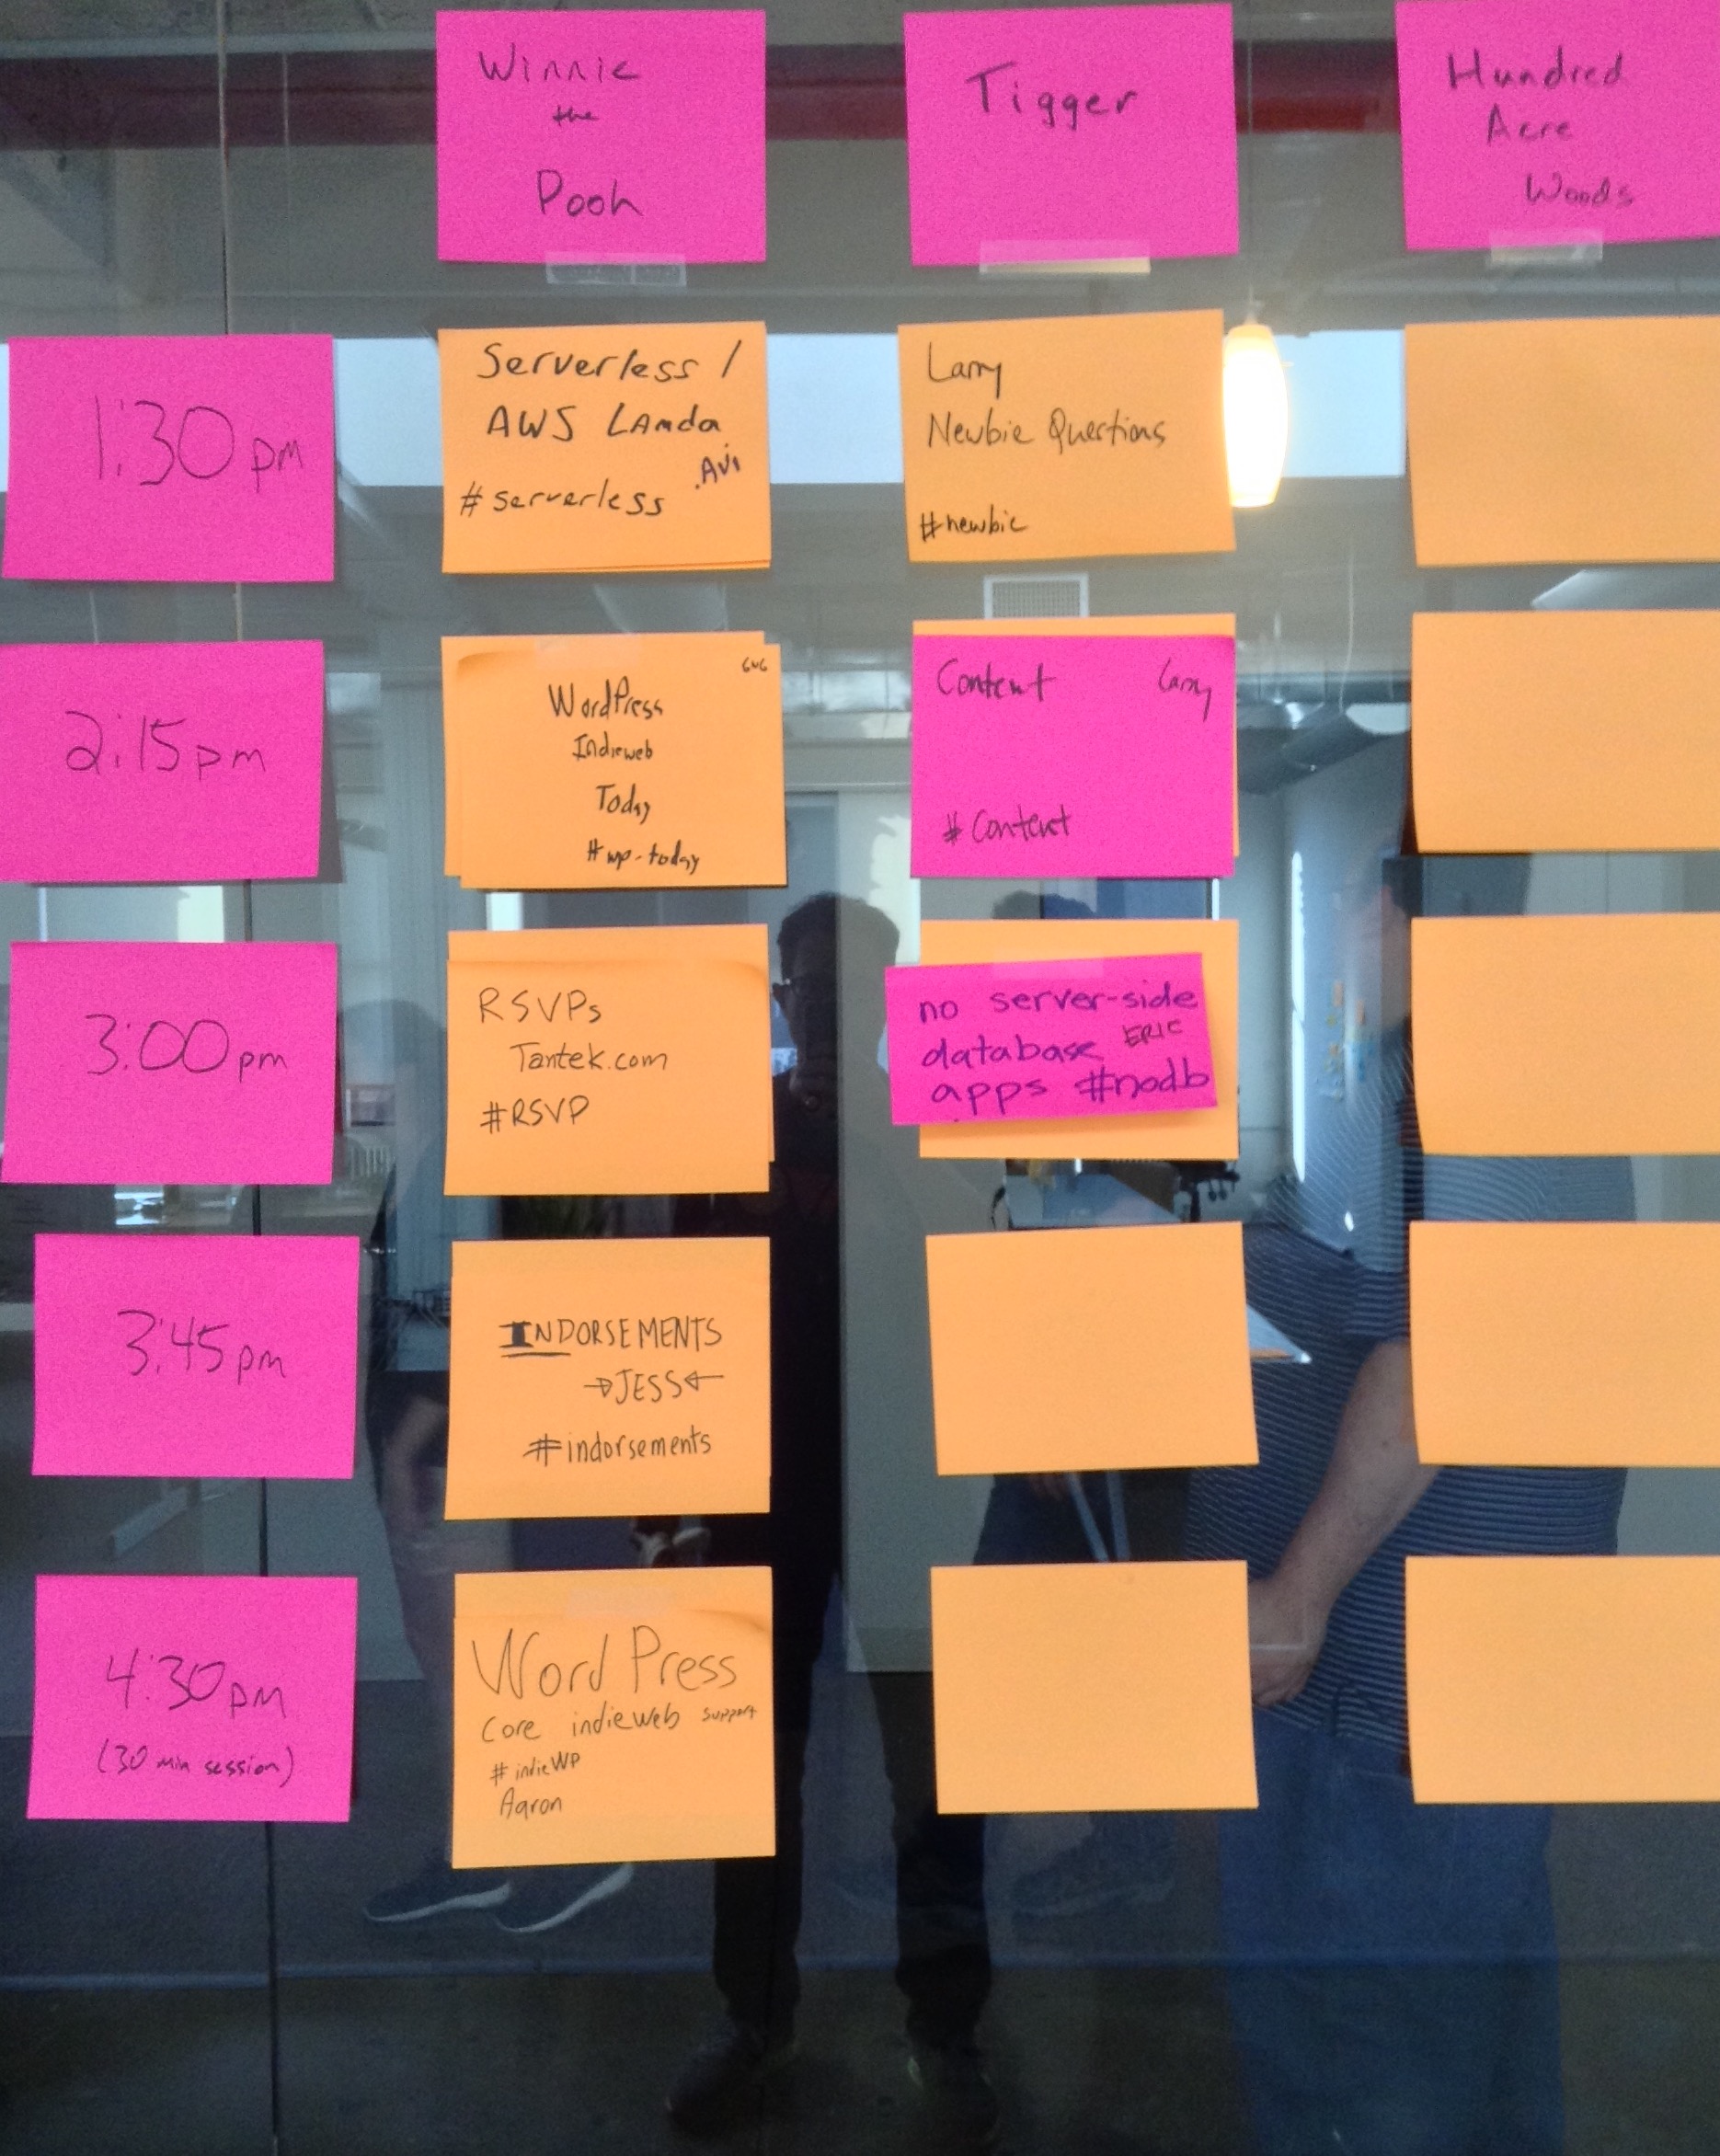 Winnie
the
Pooh
Tigger
Hundred
Acre
Woods
1:30 pm
Serverless /
AWS LAmda
.Avi
#serverless
Larry
Newbie Questions
#newbie
2:15 pm
WordPress
Indieweb
Today
#wp-today
Content Larry
#Content
3:00 pm
RSVPs
Tantek.com
#RSVP
no server-side
database ERIC
apps #nodb
3:45 pm
INDORSEMENTS
→JESS←
#indorsements
4:30 pm
(30 min session)
WordPress
Core indieweb support
#indieWP
Aaron